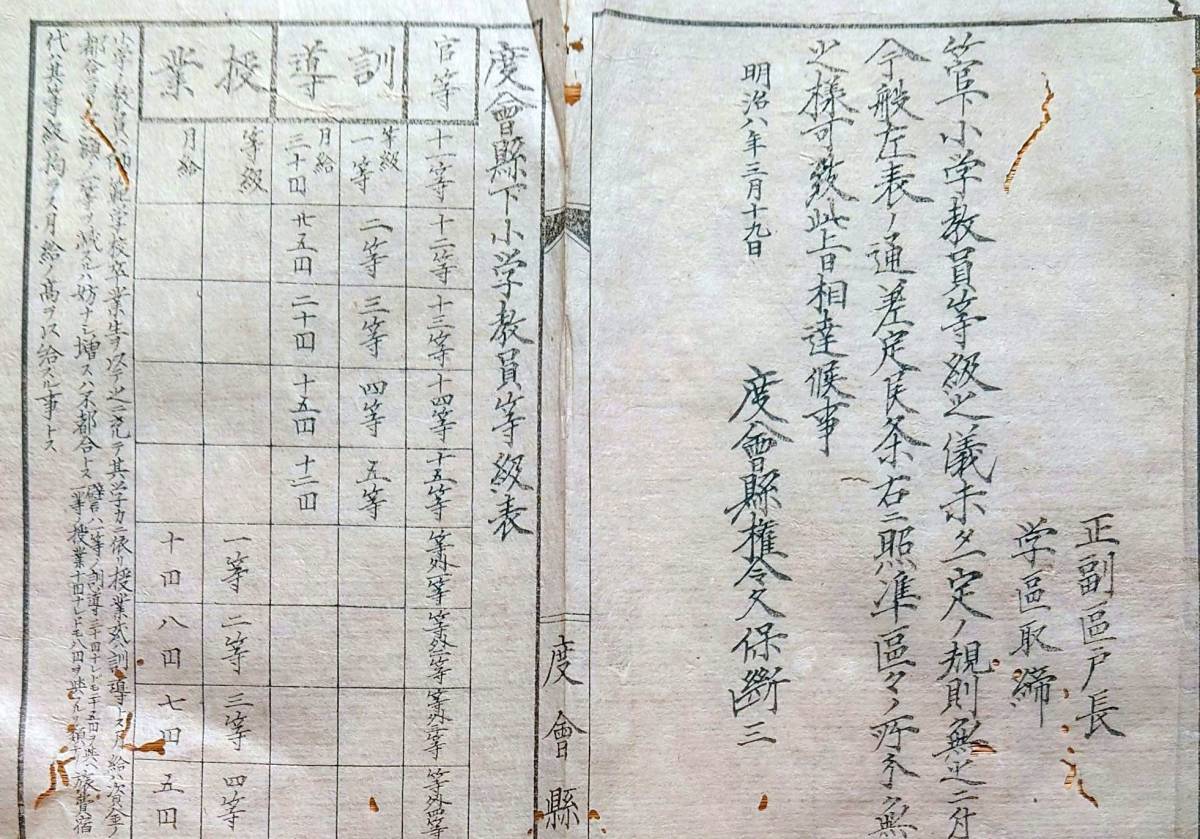 正副區戸長
学區取締
管下小学教員等級之儀未タ一定ノ規則無之ニ付
今般左表ノ通差定候条右ニ照準區々ノ所分無
之様可致此旨相達候事
明治八年三月十九日
度會縣権令久保断三
度會縣
度會縣下小学教員等級表
官等 十一等 十二等 十三等 十四等 十五等 等外一等 等外二等 等外三等 等外四等
訓導 等級 一等 二等 三等 四等 五等
月給 三十円 廿五円 二十円 十五円 十二円
授業 等級 一等 二等 三等 四等
月給 十円 八円 七円 五円
小学ノ教員ハ師範学校卒業生ヲ以テ之ニ充テ其学力ニ依リ授業或ハ訓導トス月給ハ資金ノ
都合ヲ以テ等ヲ減スルハ妨ナシ増スハ不都合トス譬ハ一等ノ訓導三十円ナレトモ二十五円ヲ与ヘ一等授業十円ナレトモ八円ヲ与フルノ類 旅費宿
代ハ其等級ニ拘ラス月給ノ高ヲ以給スル事トス